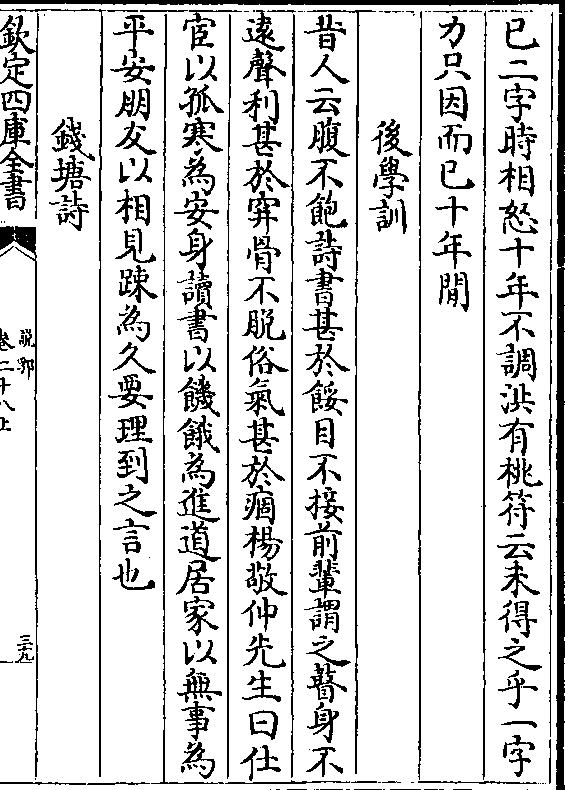 已二字時相怒十年不調洪有桃符云未得之乎一字
力只因而已十年間
後學訓
昔人云腹不飽詩書甚於餒目不接前輩謂之瞽身不
遠聲利甚於穽骨不脱俗氣甚於痼楊敬仲先生曰仕
宦以孤寒為安身讀書以饑餓為進道居家以無事為
平安朋友以相見踈為久要理到之言也
錢塘詩
欽定四庫全書
說郛
卷二十八上
三十九